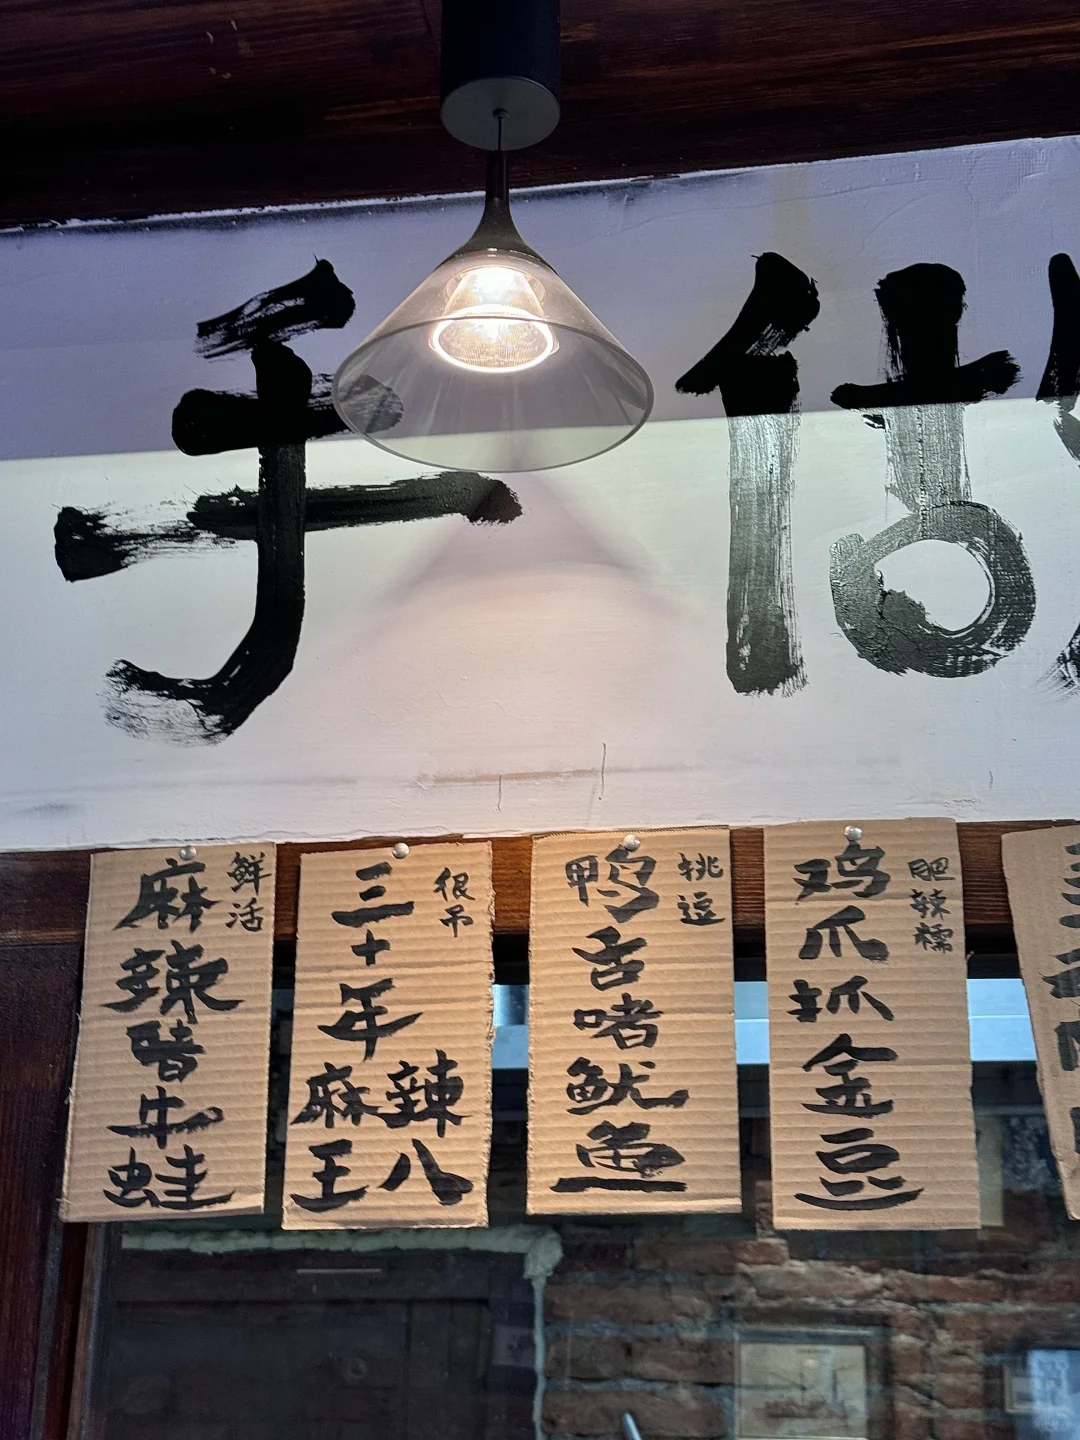 手估
麻辣啫牛蛙
鲜活
三十年麻辣王八
很吊
鸭舌啫鱿鱼
挑逗
鸡爪抓金豆
肥辣糯